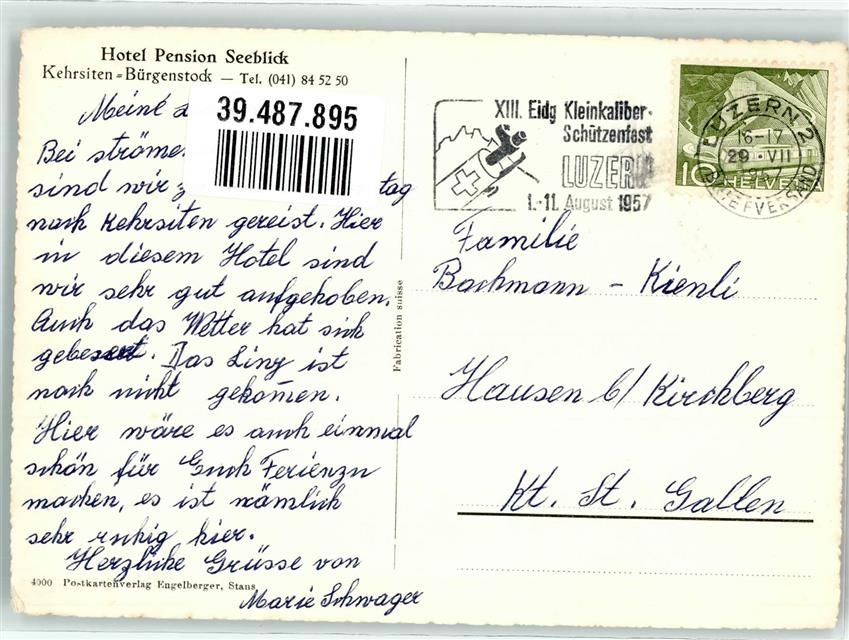 Hotel Pension Seeblick
Kehrsiten-Bürgenstock — Tel. (041) 84 52 50
39.487.895
Meine
Bei
sind wir tag
nach Kehrsiten gereist. Hier
in diesem Hotel sind
wir sehr gut aufgehoben.
Auch das Wetter hat sich
gebessert. Das Ling ist
noch nicht gekommen.
Hier wäre es auch einmal
schön für Euch Ferien zu
machen, es ist nämlich
sehr ruhig hier.
Herzliche Grüsse von
Marie Schwager
4000 Postkartenverlag Engelberger, Stans
Fabrication suisse
XIII. Eidg Kleinkaliber-
Schützenfest
LUZERN
1.-11. August 1957
LUZERN 2
16-17
29 · VII
1957
BRIEFVERSAND
10 HELVETIA
Familie
Bachmann - Kienli
Hausen b/ Kirchberg
Kt. St. Gallen